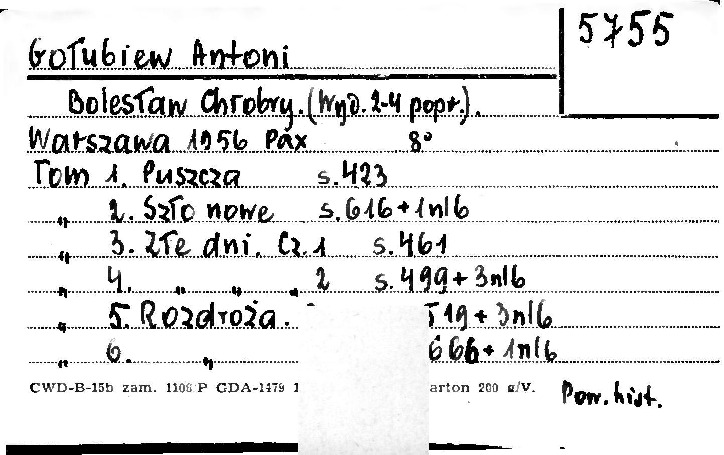 5755
Gołubiew Antoni
Bolesław Chrobry. (Wyd. 2-4 popr.).
Warszawa 1956 Pax 8°
Tom 1. Puszcza s. 423
„ 2. Szło nowe s. 616 + 1 nlb
„ 3. Złe dni. Cz. 1 s. 461
„ 4. „ „ „ 2 s. 499 + 3 nlb
„ 5. Rozdroża. 719 + 3 nlb
„ 6. „ 666 + 1 nlb
CWD-B-15b zam. 1106 P GDA-1479 arton 200 g/V.
Pow. hist.